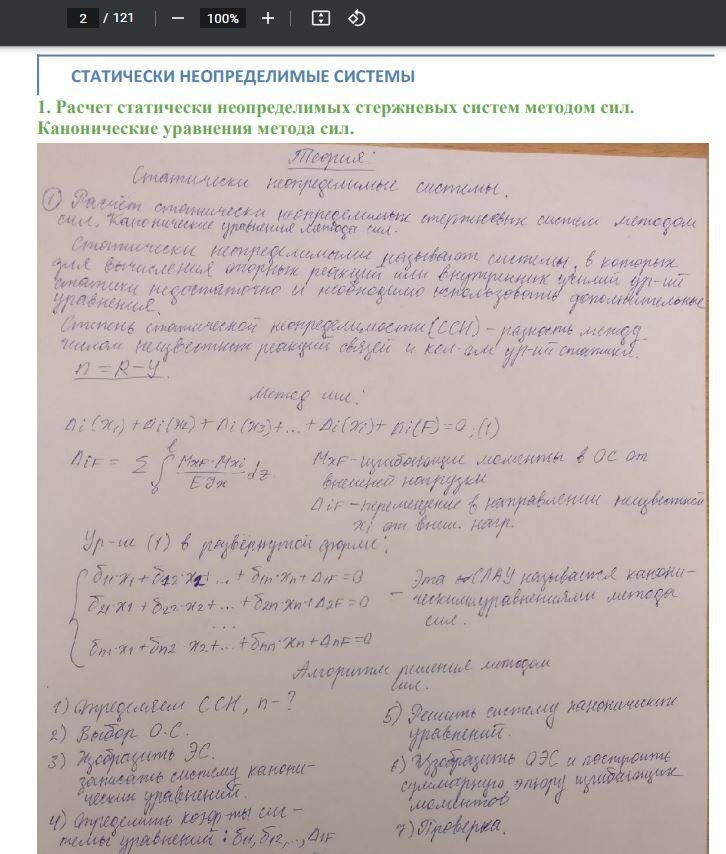 2 / 121 100%
СТАТИЧЕСКИ НЕОПРЕДЕЛИМЫЕ СИСТЕМЫ
1. Расчет статически неопределимых стержневых систем методом сил.
Канонические уравнения метода сил.
Теория:
Статически неопределимые системы.
① Расчёт статически неопределимых стержневых систем методом
сил. Канонические уравнения метода сил.
Статически неопределимыми называют системы, в которых
для вычисления опорных реакций или внутренних усилий ур-ий
статики недостаточно и необходимо использовать дополнительные
уравнения.
Степень статической неопределимости (ССН) - разность между
числом неизвестных реакций связей и кол-ом ур-ий статики.
n = R - У.
Метод сил:
Δi(x1) + Δi(x2) + Δi(x3) + ... + Δi(xi) + Δi(F) = 0; (1)
ΔiF = Σ ∫₀ˡ MxF·Mxi / EJx dz
MxF - изгибающие моменты в ОС от
внешней нагрузки
ΔiF - перемещение в направлении неизвестной
xi от внеш. нагр.
Ур-ие (1) в развёрнутой форме:
δ11·x1 + δ12·x2 + ... + δ1n·xn + Δ1F = 0
δ21·x1 + δ22·x2 + ... + δ2n·xn + Δ2F = 0
...
δn1·x1 + δn2·x2 + ... + δnn·xn + ΔnF = 0
- Эта СЛАУ называется канони-
ческими уравнениями метода
сил.
Алгоритм решения методом
сил.
1) Определяем ССН, n - ?
2) Выбор О.С.
3) Изобразить ЭС.
записать систему канони-
ческих уравнений.
4) Определить коэф-ты сис-
темы уравнений: δ11, δ12, .., Δ1F
5) Решить систему канонических
уравнений.
6) Изобразить ОЭС и построить
суммарную эпюру изгибающих
моментов
7) Проверка.